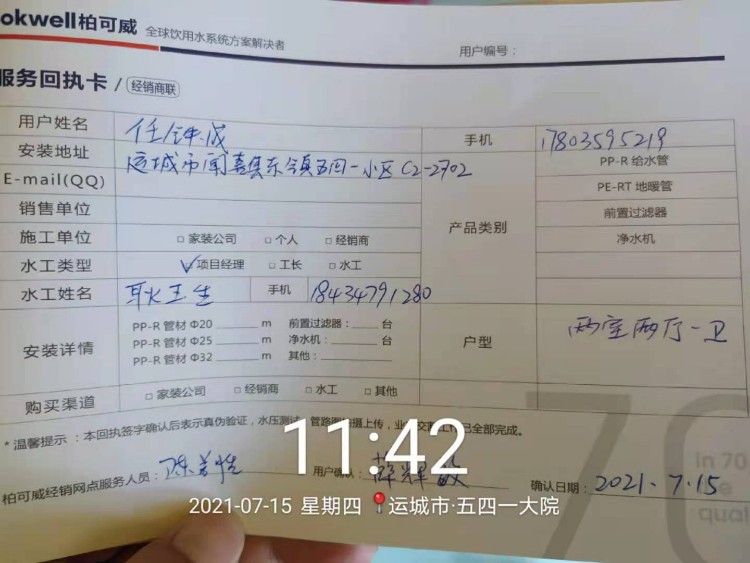 okwell柏可威 全球饮用水系统方案解决者
用户编号：
服务回执卡 / 经销商联
用户姓名 任钟成 手机 17803595219
安装地址 运城市闻喜县东镇五四一小区C2-2702
E-mail(QQ)
销售单位
产品类别
PP-R 给水管
PE-RT 地暖管
前置过滤器
净水机
施工单位 □ 家装公司 □ 个人 □ 经销商
水工类型 ☑ 项目经理 □ 工长 □ 水工
水工姓名 耿玉生 手机 18434791280
安装详情
PP-R 管材 Φ20 m 前置过滤器： 台
PP-R 管材 Φ25 m 净水机： 台
PP-R 管材 Φ32 m 其他：
户型 两室两厅一卫
购买渠道 □ 家装公司 □ 经销商 □ 水工 □ 其他
* 温馨提示：本回执签字确认后表示真伪验证，水压测试，管路图拍摄上传，全部完成。
柏可威经销网点服务人员： 用户确认：薛辉敏 确认日期：2021.7.15
11:42
2021-07-15 星期四 运城市·五四一大院
70
In 70
qual